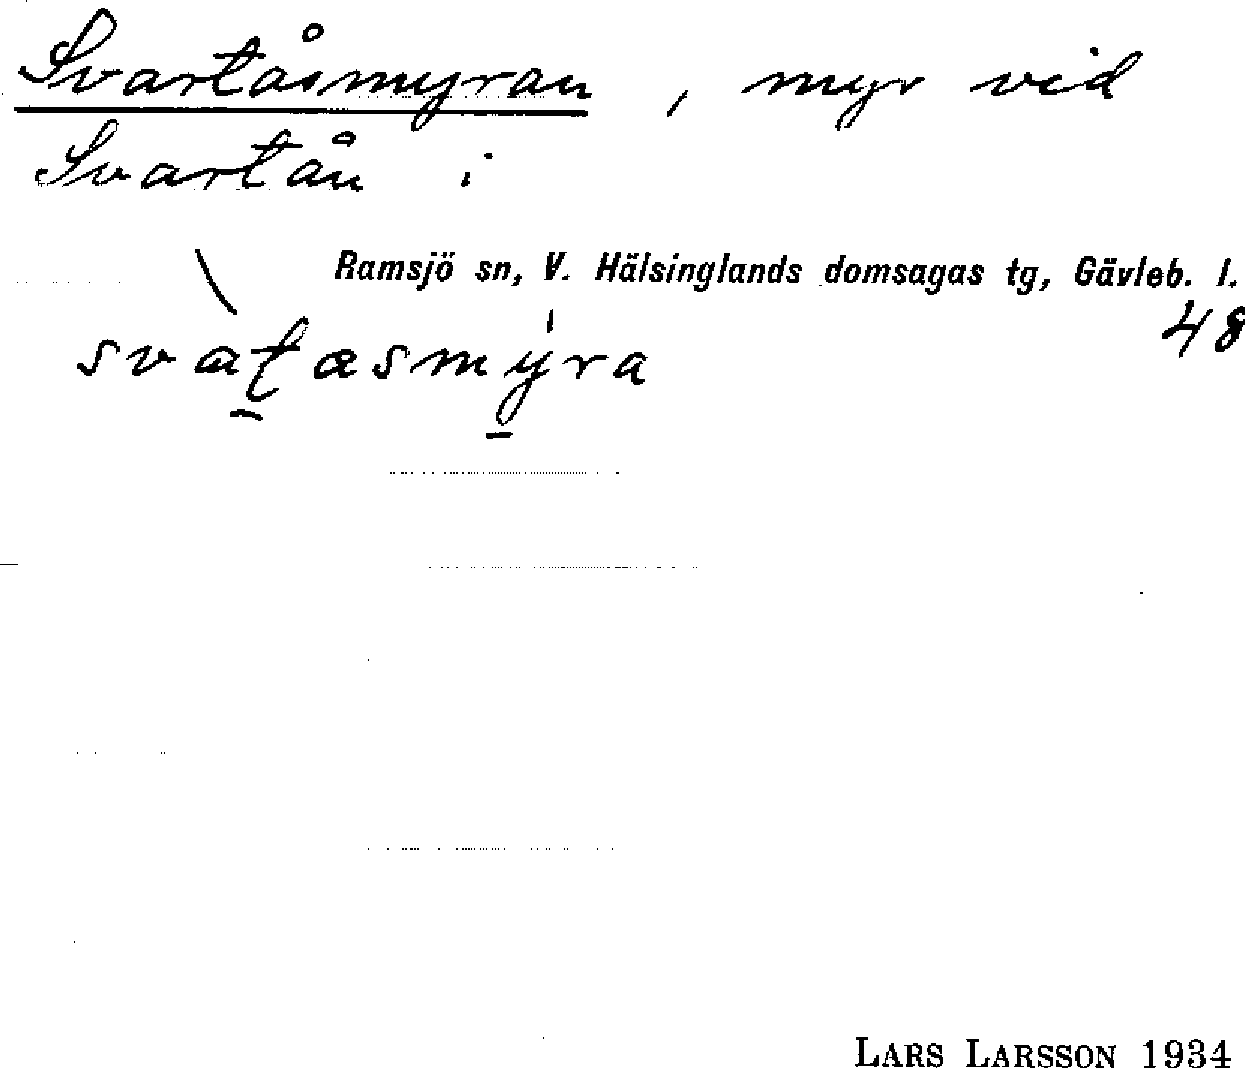 Svartåsmyran, myr vid
Svartån i
Ramsjö sn, V. Hälsinglands domsagas tg, Gävleb. l.
48
svatasmyra
LARS LARSSON 1934